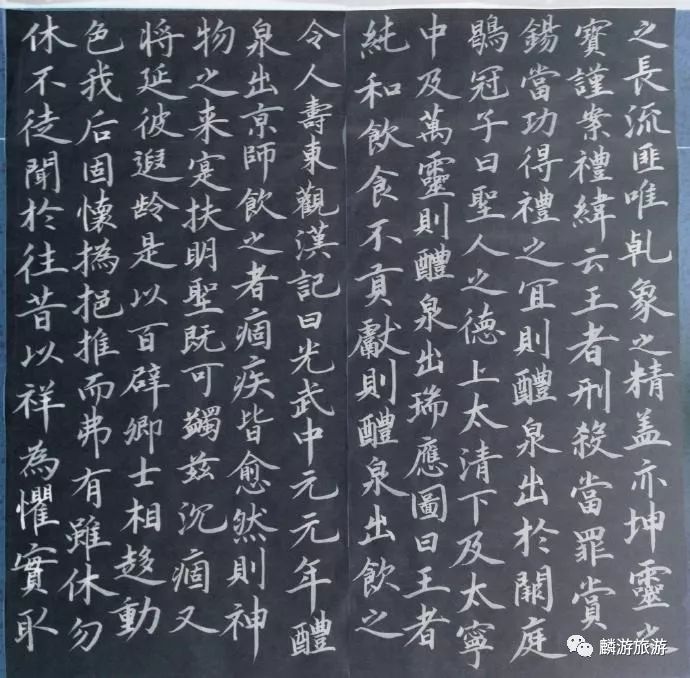 之長流匪唯乹象之精盖亦坤靈之
寶謹案禮緯云王者刑殺當罪賞
錫當功得禮之宜則醴泉出於闕庭
鶡冠子曰聖人之德上太清下及太寧
中及萬靈則醴泉出瑞應圖曰王者
純和飲食不貢獻則醴泉出飲之
令人壽東觀漢記曰光武中元元年醴
泉出京師飲之者痼疾皆愈然則神
物之来寔扶明聖既可蠲兹沉痼又
将延彼遐龄是以百辟卿士相趍動
色我后固懷撝挹推而弗有雖休勿
休不徒聞於往昔以祥為懼實取
麟游旅游